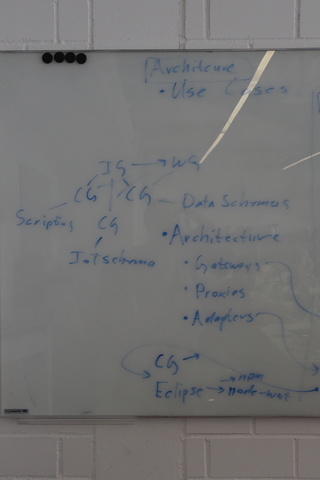 Architecure
• Use Cases
IG → WG
CG CG
Scripting CG Data Schemas
IoTschema
• Architecture
• Gateways
• Proxies
• Adapters
CG →
→ npm
Eclipse → node-wot